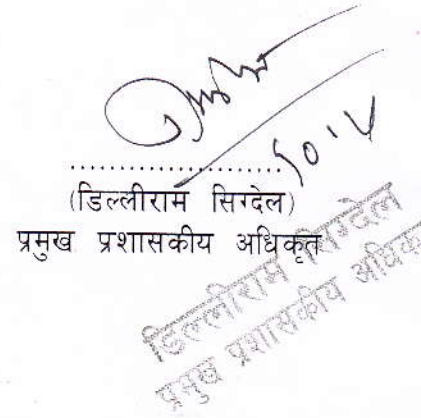 ....................
(डिल्लीराम सिग्देल)
प्रमुख प्रशासकीय अधिकृत
डिल्लीराम सिग्देल
प्रमुख प्रशासकीय